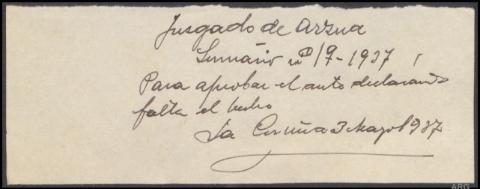 Juzgado de Arzua
Sumario nº 19-1937
Para aprobar el auto declarando
falta el hecho
La Coruña 3 Mayo 1937